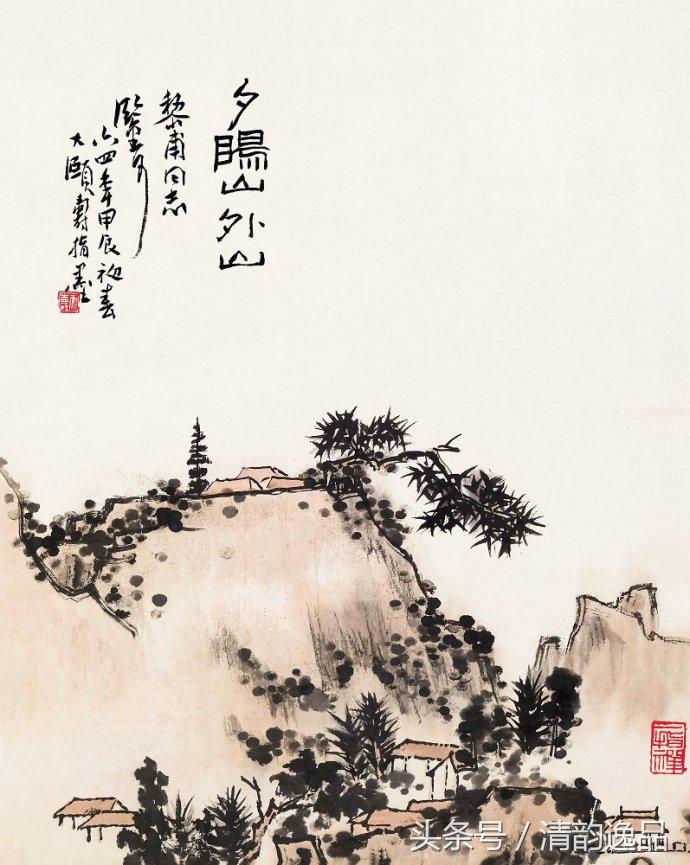 夕陽山外山
黎甫同志
鑒可
六四年甲辰初春
大頤壽指墨
头条号／清韵逸品